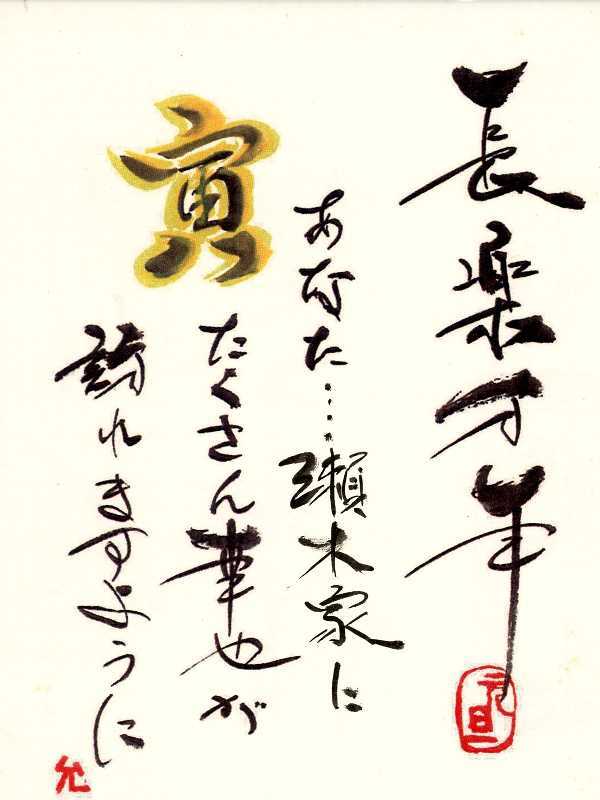 長楽万年
元旦
あなた…瀬木家に
たくさん幸せが
訪れますように
寅
允